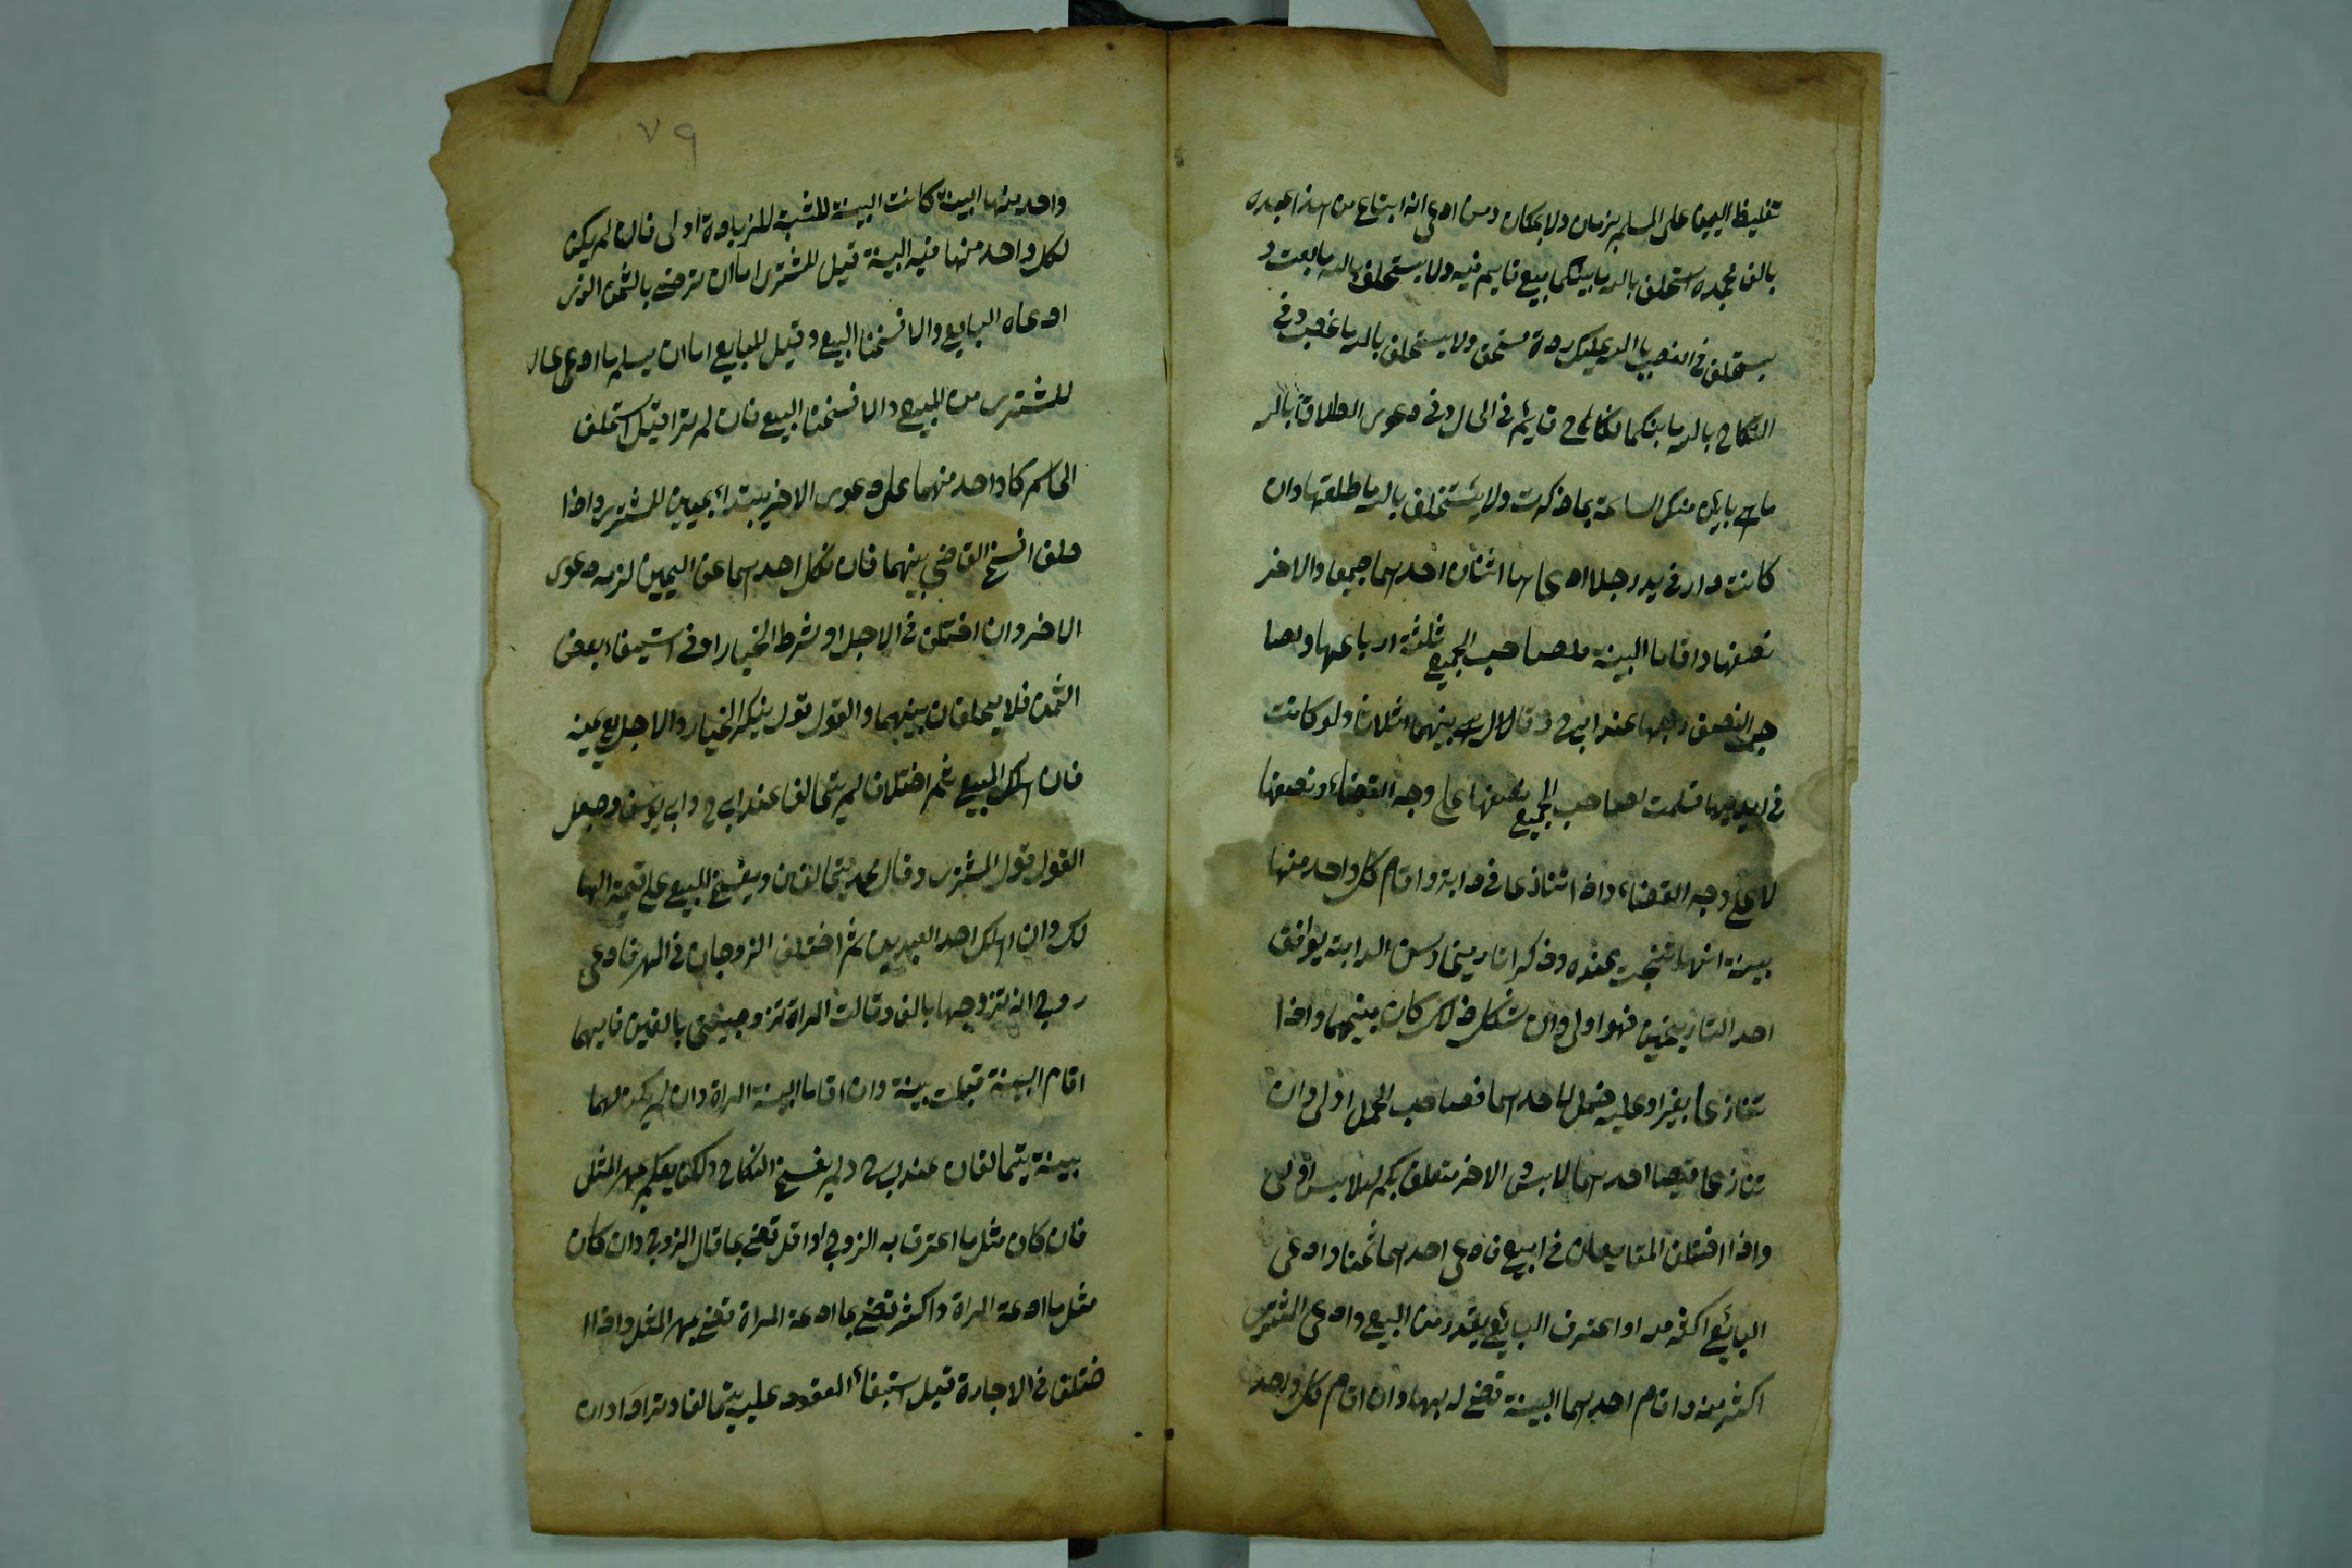 تغليظ اليمين على المسلم بزمان ولا بمكان ومن ادعى انه ابتاع من هذا عبده
بالف فجحده استحلف بالله ما بينكما بيع قايم فيه ولا يستحلف بالله ما بعت و
يستحلف في الغصب بالله عليك رده ولا يستحلف بالله ما غصبت وفي
النكاح بالله ما بينكما نكاح قايم في الحال وفي دعوى الطلاق بالله
ما هي باين منك الساعة بما ذكرت ولا يستحلف بالله ما طلقتها وان
كانت دار في يد رجل ادعاها اثنان احدهما جميعا والاخر
نصفها واقاما البينة فلصاحب الجميع ثلثة ارباعها ولصا
حب النصف ربعها عند ابي ح وقالا هي بينهما اثلاثا ولو كانت
في ايديهما سلمت لصاحب الجميع نصفها على وجه القضاء ونصفها
لا على وجه القضاء واذا اتنازعا في دابة واقام كل واحد منها
بينة انها نتجت عنده وذكرا تاريخا وسن الدابة يوافق
احد التاريخين فهو اولى وان شكل ذلك كان بينهما واذا
تنازعا بغيرا وعليه حمل لاحدهما فصاحب الحمل اولى وان
تنازعا قميصا احدهما لابس والاخر متعلق بكم فلابس اولى
واذا اختلف المتايعان في البيع فادعى احدهما ثمنا وادعى
البائع اكثر منه او اعترف البائع بقدر من البيع وادعى المشترى
اكثر منه واقام احدهما البينة قضى له بها وان اقام كل واحد
٧٩
واحد منها البينة كانت البينة المثبتة للزيادة اولى فان لم يكن
لكل واحد منها فيه البينة قيل للمشترى اما ان ترضى بالثمن الذى
ادعاه البايع والا فسخنا البيع وقيل للبايع اما ان يسلم ما ادعى عاه
للمشترى من المبيع والا فسخنا البيع فان لم يتراضيا استحلف
الحاكم كل واحد منهما على دعوى الاخر يبتداء بيمين المشترى واذا
حلف افسخ القاضي بينهما فان نكل احدهما عن اليمين لزمه دعوى
الاخر وان اختلف في الاجل او شرط الخيار او في استيفاء بعض
الثمن فلا يحلفان بينهما والقول قول ينكر الخيار والاجل مع يمينه
فان هلك المبيع ثم اختلفا لم يتحالفا عند ابي ح وابي يوسف وجعل
القول قول المشترى وقال محمد يتحالفان ويفسخ البيع على قيمة الها
لك وان هلك احد العبدين ثم اختلف الزوجان في المهر فادعى
زوج انه تزوجها بالف وقالت المراة تزوجتني بالفين فايهما
اقام البينة قبلت بينة وان اقاما البينة المراة وان لم يكن لهما
بينة يتحالفان عند ابي ح ولم يفسخ النكاح ولكن يحكم مهر المثل
فان كان مثل ما اعترف به الزوج او اقل قضى بما قال الزوج وان كان
مثل ما ادعته المراة واكثر قضى بما ادعته المراة قضى بمهر المثل واذا
ختلف في الاجارة قبل استيفاء المعقود عليه يتحالفا وترادا وان